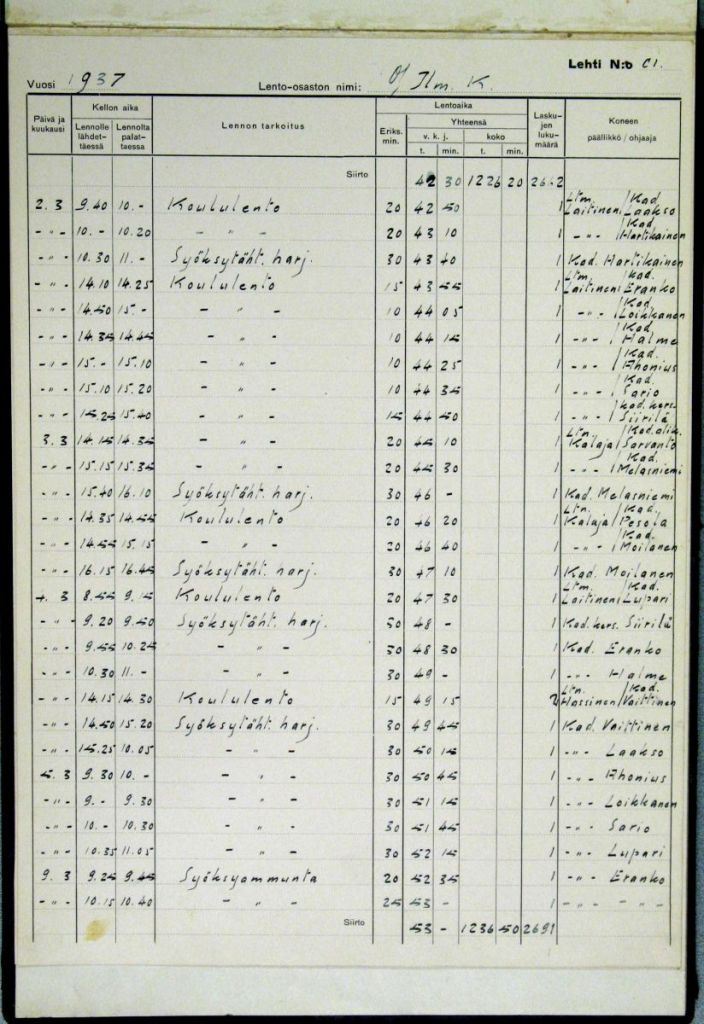 Lehti N:o CI.
Vuosi 1937 Lento-osaston nimi: O/Ilm. K.
Päivä ja kuukausi Kellon aika Lennolle lähdettäessä Lennolta palattaessa Lennon tarkoitus Lentoaika Eriks. min. Yhteensä v. k. j. t. min. koko t. min. Laskujen lukumäärä Koneen päällikkö / ohjaaja
Siirto 42 30 1226 20 2662
2.3 9.40 10.- Koululento 20 42 50 1 Ltm. Laitinen / Kad. Laakso
-"- 10.- 10.20 - " - 20 43 10 1 -"- / Kad. Hartikainen
-"- 10.30 11.- Syöksytäht. harj. 30 43 40 1 Kad. Hartikainen
-"- 14.10 14.25 Koululento 15 43 55 1 Ltm. Laitinen / Kad. Eranko
-"- 14.50 15.- - " - 10 44 05 1 -"- / Kad. Loikkanen
-"- 14.35 14.45 - " - 10 44 15 1 -"- / Kad. Halme
-"- 15.- 15.10 - " - 10 44 25 1 -"- / Kad. Ahonius
-"- 15.10 15.20 - " - 10 44 35 1 -"- / Kad. Sario
-"- 15.25 15.40 - " - 15 44 50 1 -"- / Kad.kers. Siirilä
3.3 14.15 14.35 - " - 20 45 10 1 Ltn. Kalaja / Kad.alik. Sarvanto
-"- 15.15 15.35 - " - 20 45 30 1 -"- / Kad. Melasniemi
-"- 15.40 16.10 Syöksytäht. harj. 30 46 - 1 Kad. Melasniemi
-"- 14.35 14.55 Koululento 20 46 20 1 Ltn. Kalaja / Kad. Pesola
-"- 14.55 15.15 - " - 20 46 40 1 -"- / Kad. Moilanen
-"- 16.15 16.45 Syöksytäht. harj. 30 47 10 1 Kad. Moilanen
4.3 8.55 9.15 Koululento 20 47 30 1 Ltm. Laitinen / Kad. Lupari
-"- 9.20 9.50 Syöksytäht. harj. 30 48 - 1 Kad.kers. Siirilä
-"- 9.55 10.25 - " - 30 48 30 1 Kad. Eranko
-"- 10.30 11.- - " - 30 49 - 1 -"- Halme
-"- 14.15 14.30 Koululento 15 49 15 2 Ltn. Hassinen / Kad. Vaittinen
-"- 14.50 15.20 Syöksytäht. harj. 30 49 45 1 Kad. Vaittinen
-"- 15.25 10.05 - " - 30 50 15 1 -"- Laakso
5.3 9.30 10.- - " - 30 50 45 1 -"- Ahonius
-"- 9.- 9.30 - " - 30 51 15 1 -"- Loikkanen
-"- 10.- 10.30 - " - 30 51 45 1 -"- Sario
-"- 10.35 11.05 - " - 30 52 15 1 -"- Lupari
9.3 9.25 9.45 Syöksyammunta 20 52 35 1 -"- Eranko
-"- 10.15 10.40 - " - 25 53 - 1 -"- -"-
Siirto 53 - 1236 50 2691